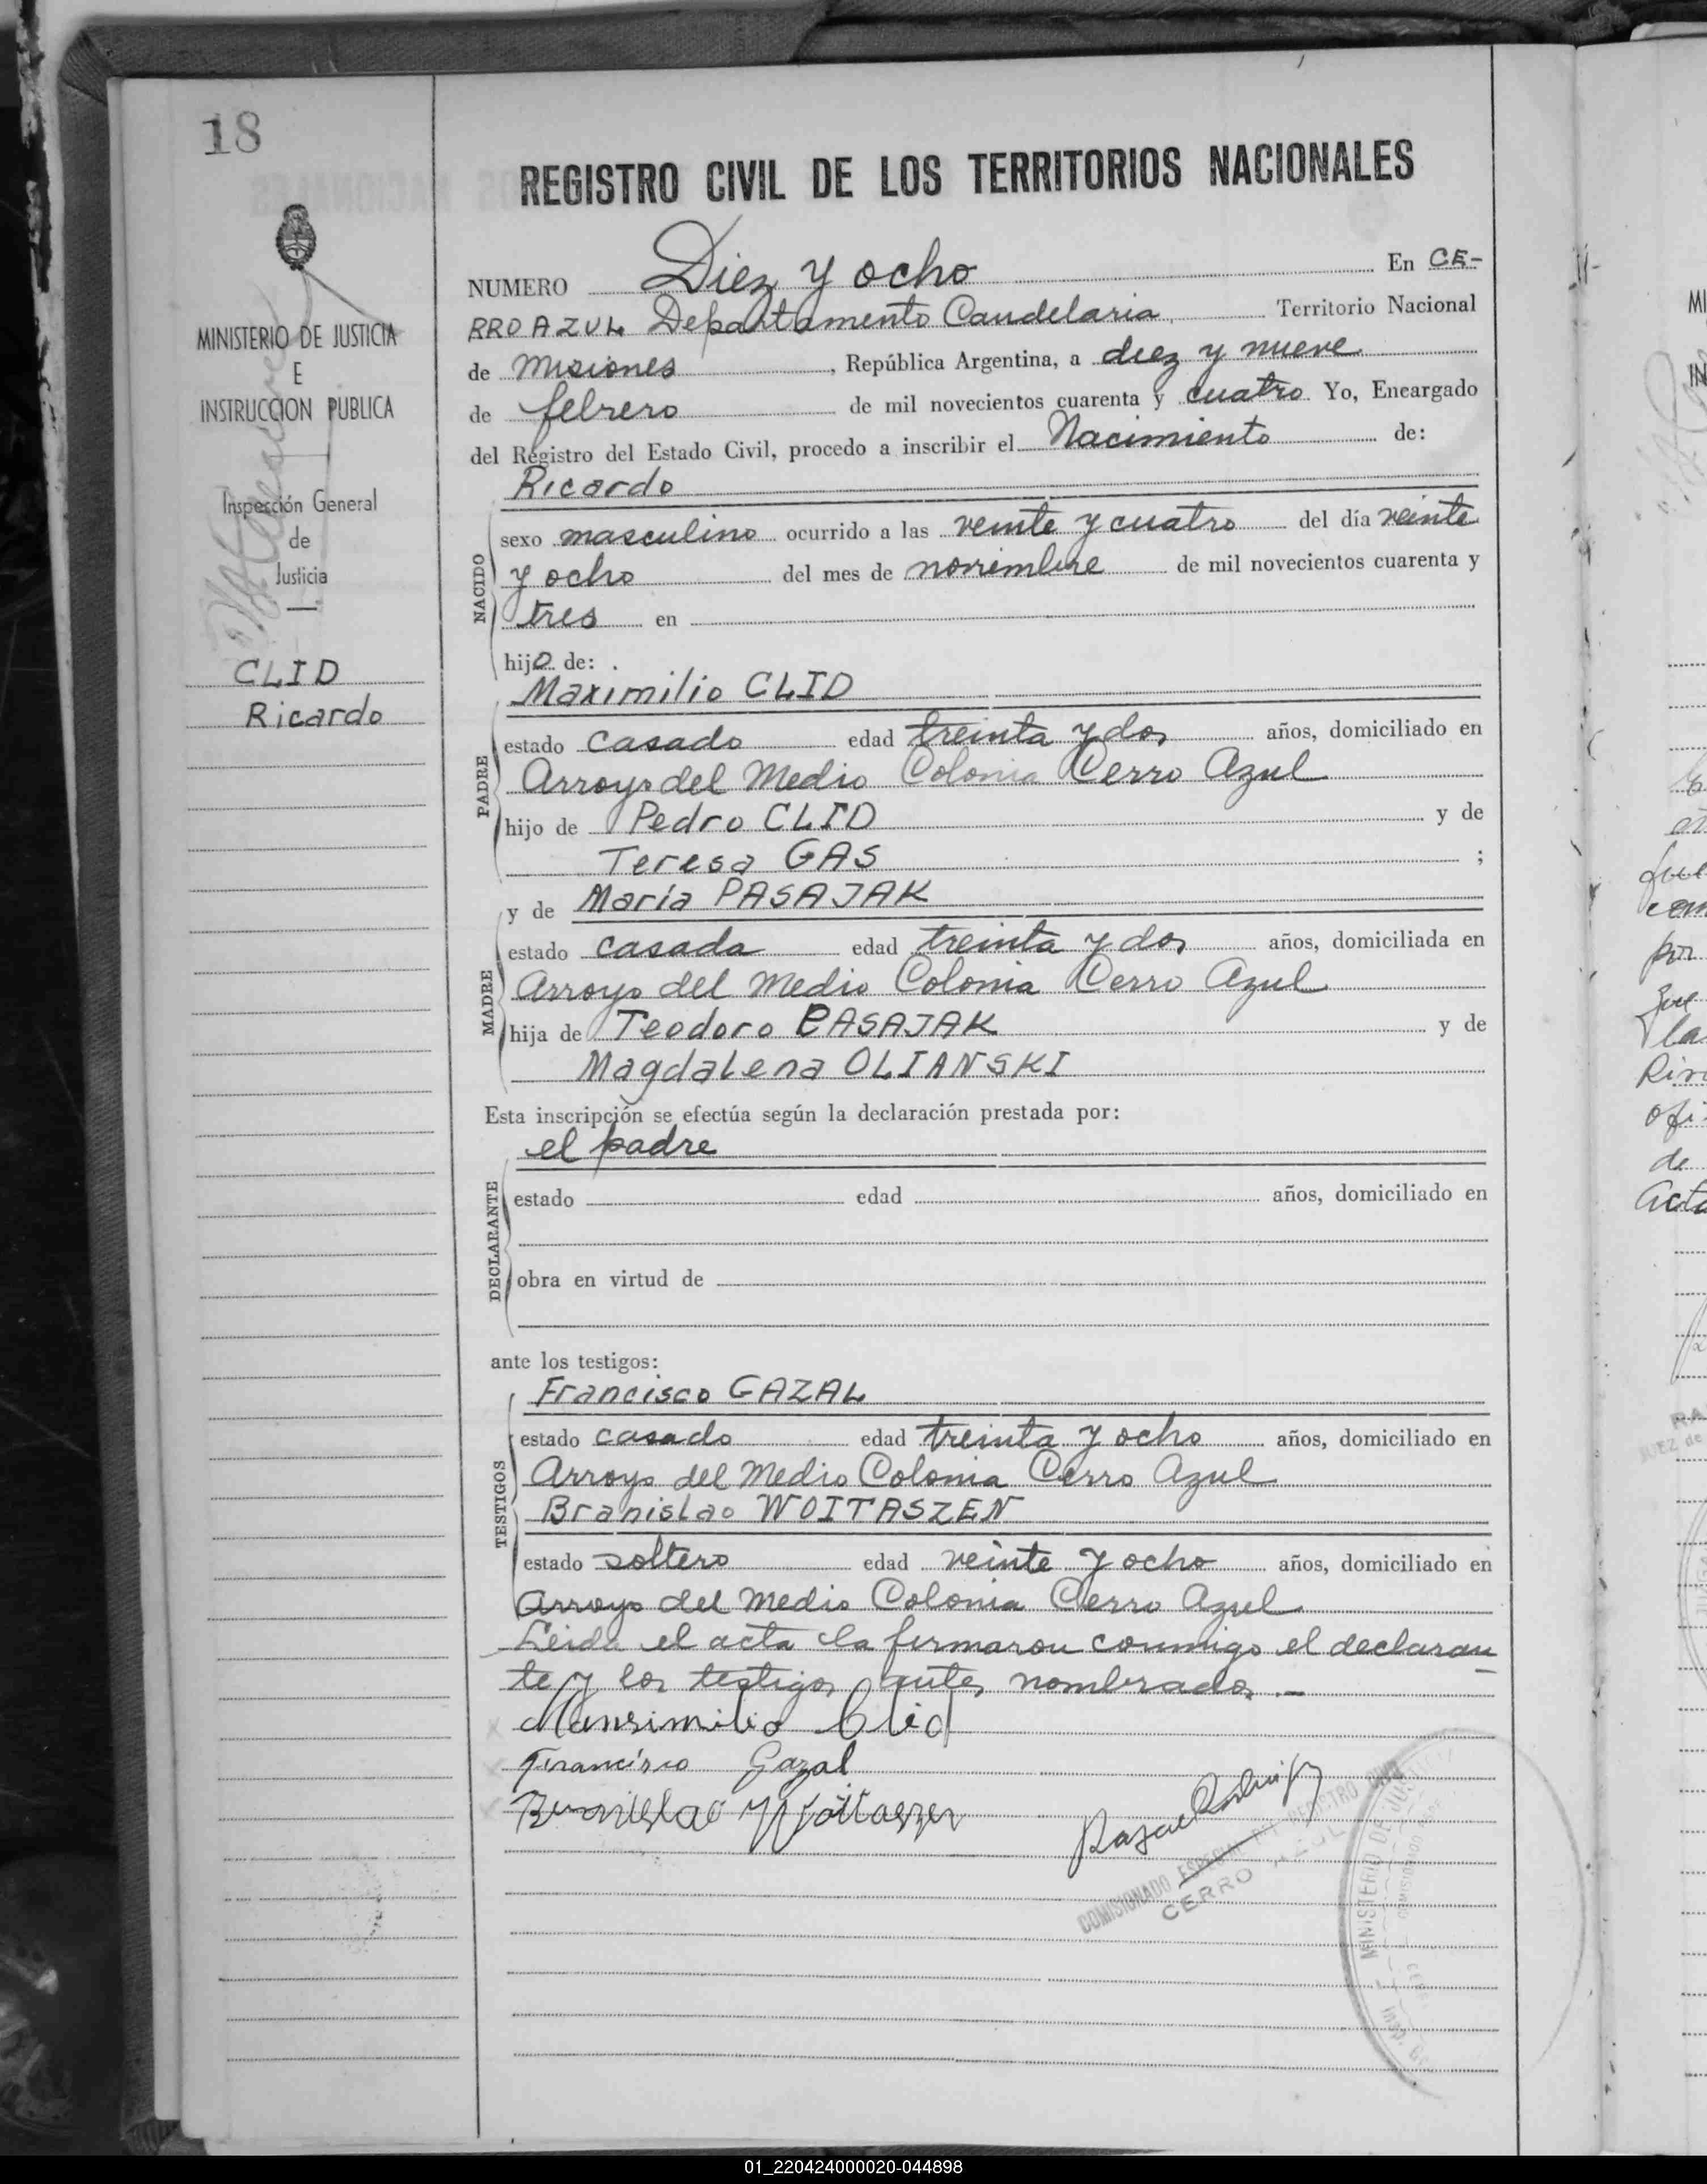 18
REGISTRO CIVIL DE LOS TERRITORIOS NACIONALES
MINISTERIO DE JUSTICIA
E
INSTRUCCION PUBLICA
Inspección General
de
Justicia
CLID
Ricardo
NUMERO Diez y ocho En CE-
RRO AZUL Departamento Candelaria Territorio Nacional
de Misiones, República Argentina, a diez y nueve
de febrero de mil novecientos cuarenta y cuatro Yo, Encargado
del Registro del Estado Civil, procedo a inscribir el Nacimiento de:
Ricardo
NACIDO
sexo masculino ocurrido a las veinte y cuatro del dia veinte
y ocho del mes de noviembre de mil novecientos cuarenta y
tres en
hijo de:
Maximilio CLID
PADRE
estado casado edad treinta y dos años, domiciliado en
Arroyo del Medio Colonia Cerro Azul
hijo de Pedro CLID y de
Teresa GAS ;
y de Maria PASAJAK
MADRE
estado casada edad treinta y dos años, domiciliada en
Arroyo del Medio Colonia Cerro Azul
hija de Teodoro PASAJAK y de
Magdalena OLIANSKI
Esta inscripción se efectúa según la declaración prestada por:
el padre
DECLARANTE
estado edad años, domiciliado en
obra en virtud de
ante los testigos:
Francisco GAZAL
TESTIGOS
estado casado edad treinta y ocho años, domiciliado en
Arroyo del Medio Colonia Cerro Azul
Branislao WOITASZEN
estado soltero edad veinte y ocho años, domiciliado en
Arroyo del Medio Colonia Cerro Azul
Leida el acta la firmaron conmigo el declaran
te y los testigos antes nombrados.-
Mansimilio Clid
Francisco Gazal
COMISIONADO ESPECIAL DEL REGISTRO CIVIL
CERRO AZUL
MINISTERIO DE JUSTICIA
01_220424000020-044898